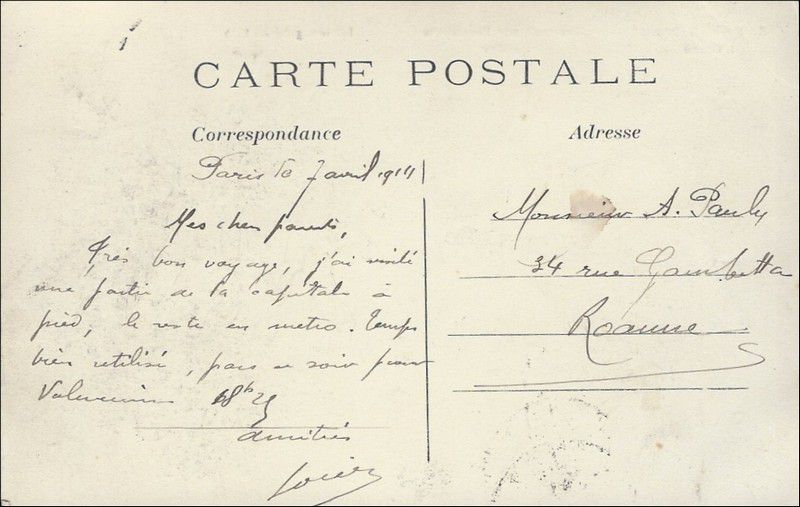 CARTE POSTALE
Correspondance
Adresse
Paris le 7 avril 1911
Mes chers parents,
Très bon voyage, j'ai visité
une partie de la capitale à
pied, le reste en métro. Temps
bien utilisé, pars ce soir pour
Valenciennes 18h25
amitiés
Monsieur A. Pauly
34 rue Gambetta
Roanne